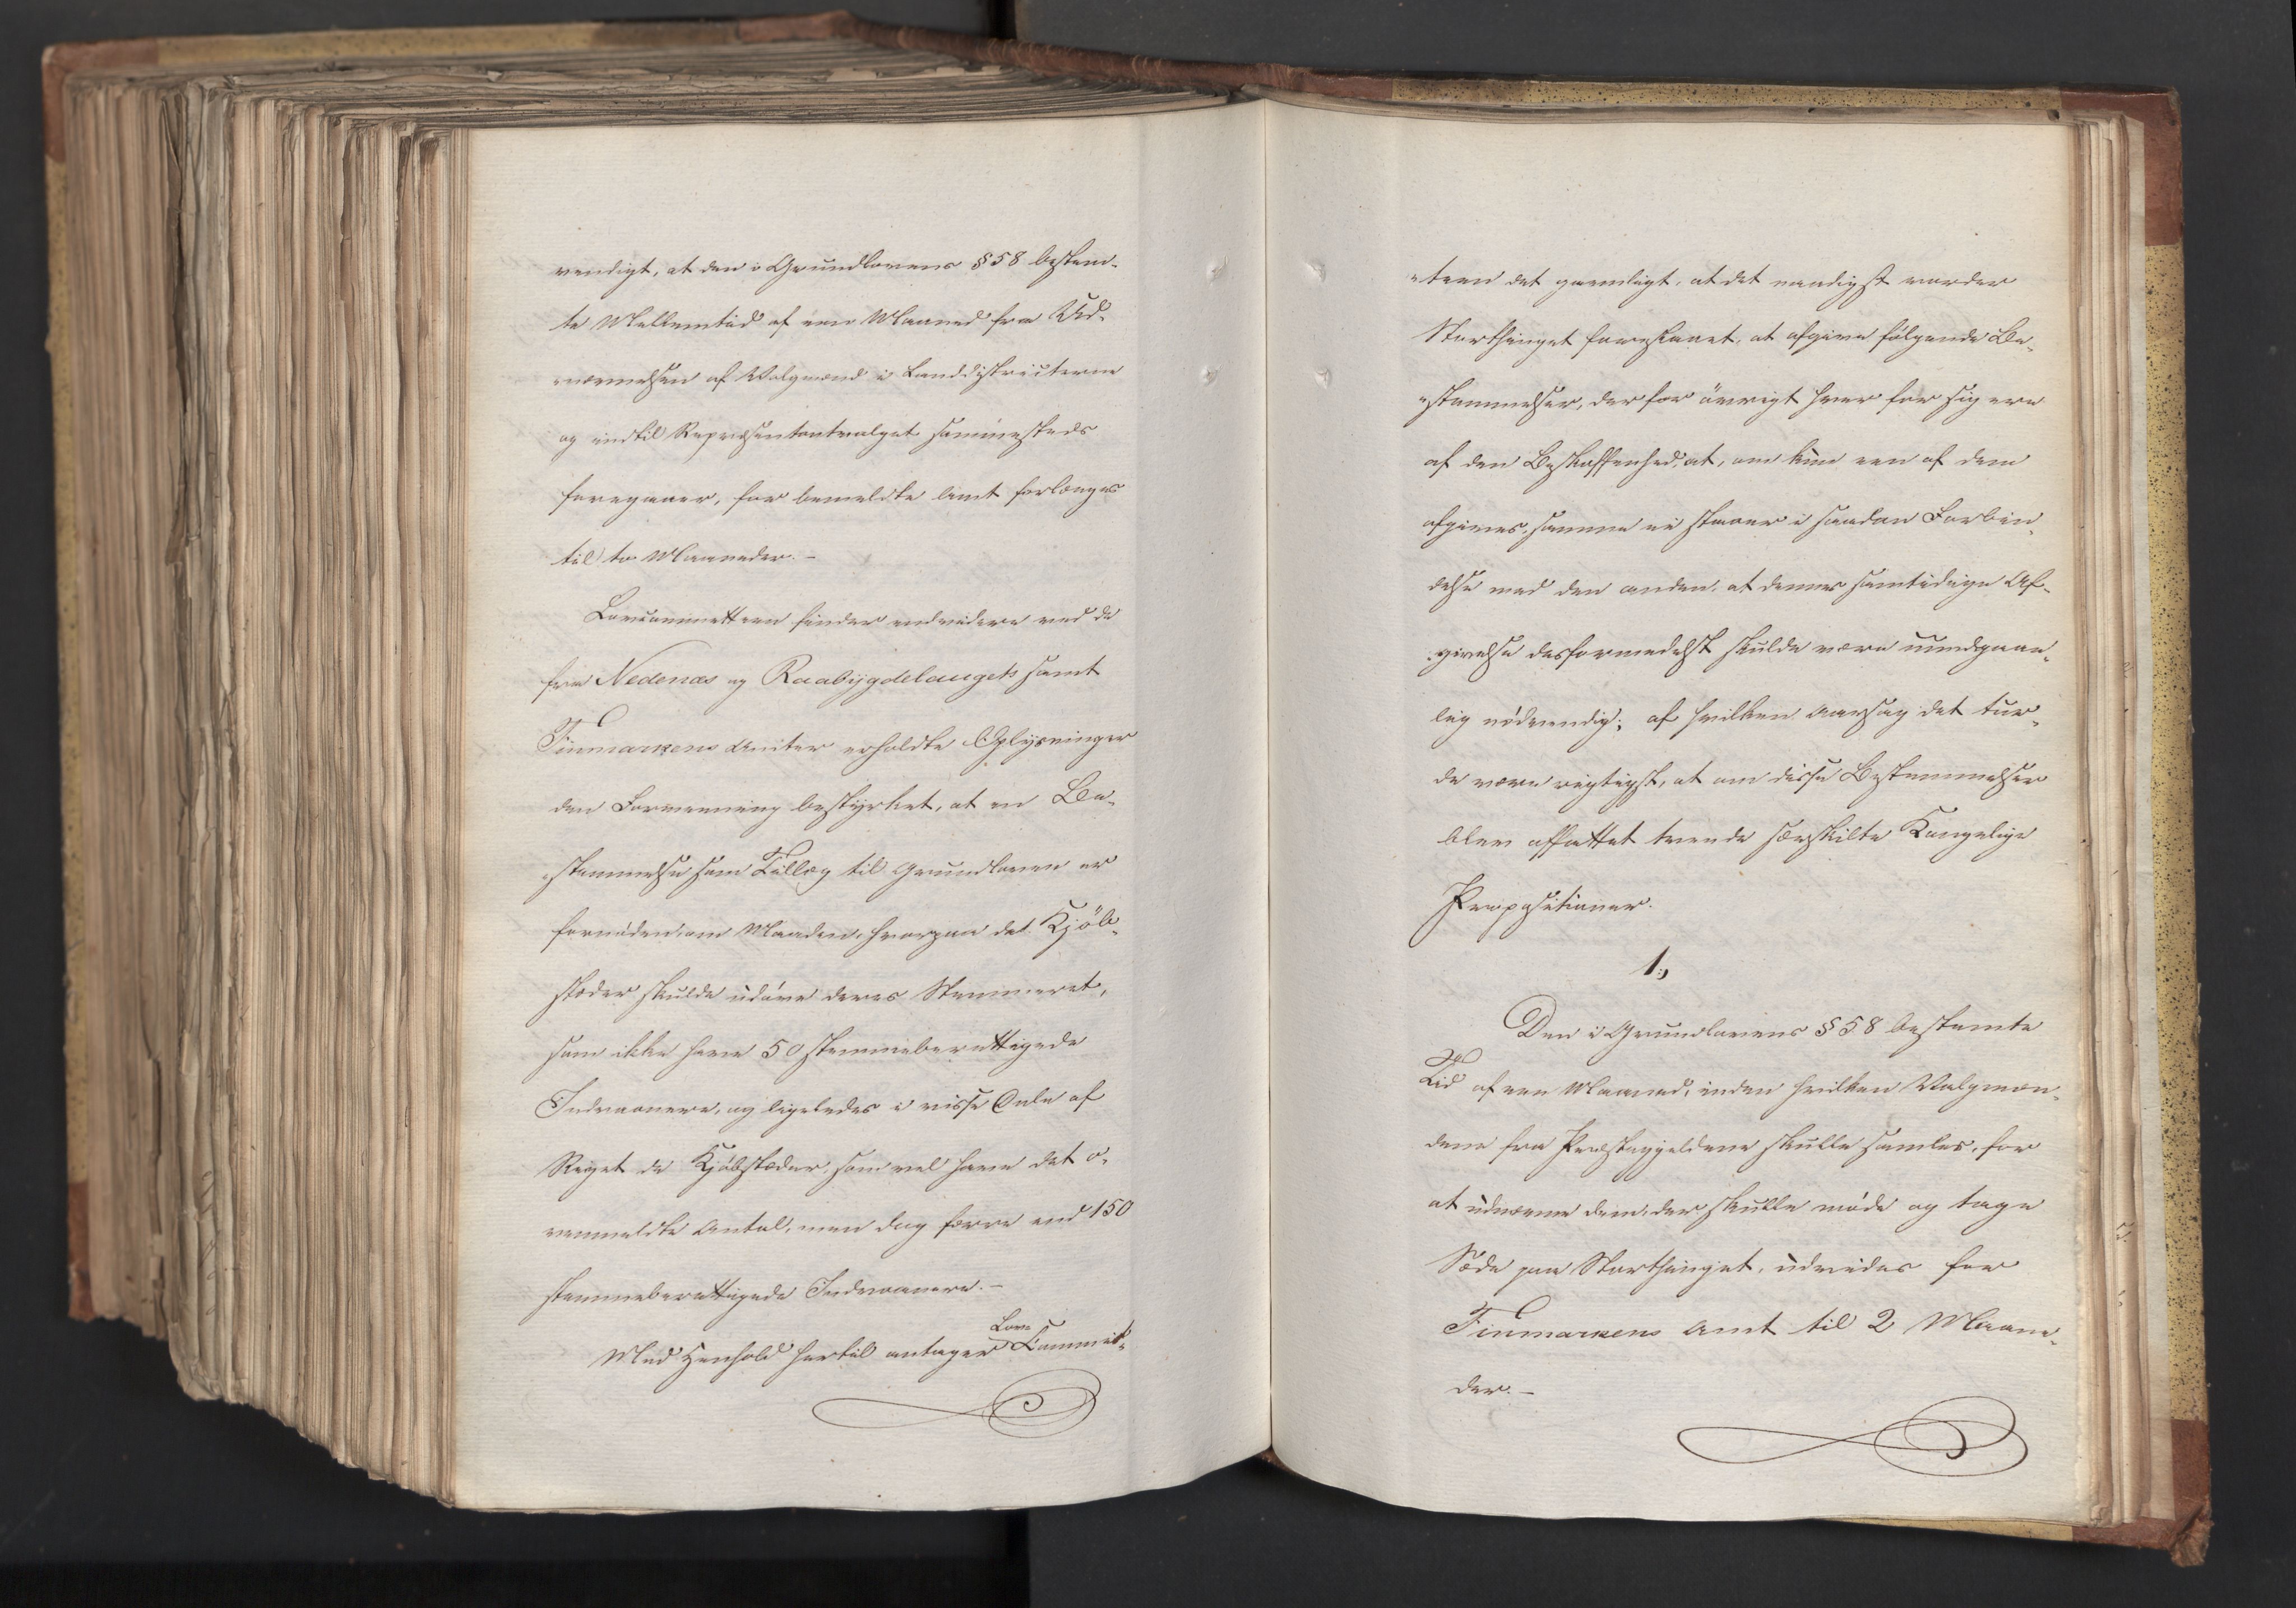 vendigt, at den i Grundlovens § 58 bestem-
te Mellemtid af een Maaned fra Ud-
nævnelsen af Valgmænd i Landdistricterne
og indtil Repræsentantvalget sammesteds
foregaaer, for bemeldte Amt forlænges
til to Maaneder. -
Lovcommitteen finder endvidere ved de
fra Nedenæs og Raabygdelaugets samt
Finmarkens Amter erholdte Oplysninger
den Formening bestyrket, at en Be-
stemmelse som Tillæg til Grundloven er
fornöden om Maaden, hvorpaa de Kjöb-
stæder skulde udöve deres Stemmeret,
som ikke have 50 stemmeberettigede
Indvaanere, og ligeledes i visse Dele af
Riget de Kjöbstæder, som vel have det o-
venmeldte Antal, men dog færre end 150
stemmeberettigede Indvaanere. -
Med Henhold hertil antager Lov-Commit-
teen det gavnligt, at det naadigst vorder
Storthinget foreslaaet, at afgive fölgende Be-
stemmelser, der for övrigt hver for sig ere
af den Beskaffenhed, at, om kun een af dem
afgives, samme ei staaer i saadan Forbin-
delse med den anden, at dennes samtidige Af-
givelse desformedelst skulde være uundgaae-
lig nödvendig; af hvilken Aarsag det tur-
de være rigtigst, at om disse Bestemmelser
blev affattet tvende særskilte Kongelige
Propositioner.
1,
Den i Grundlovens § 58 bestemte
Tid af een Maaned, inden hvilken Valgmæn-
dene fra Præstegjeldene skulle samles, for
at udnævne dem, der skulle möde og tage
Sæde paa Storthinget, udvides for
Finmarkens Amt til 2 Maane-
der. -